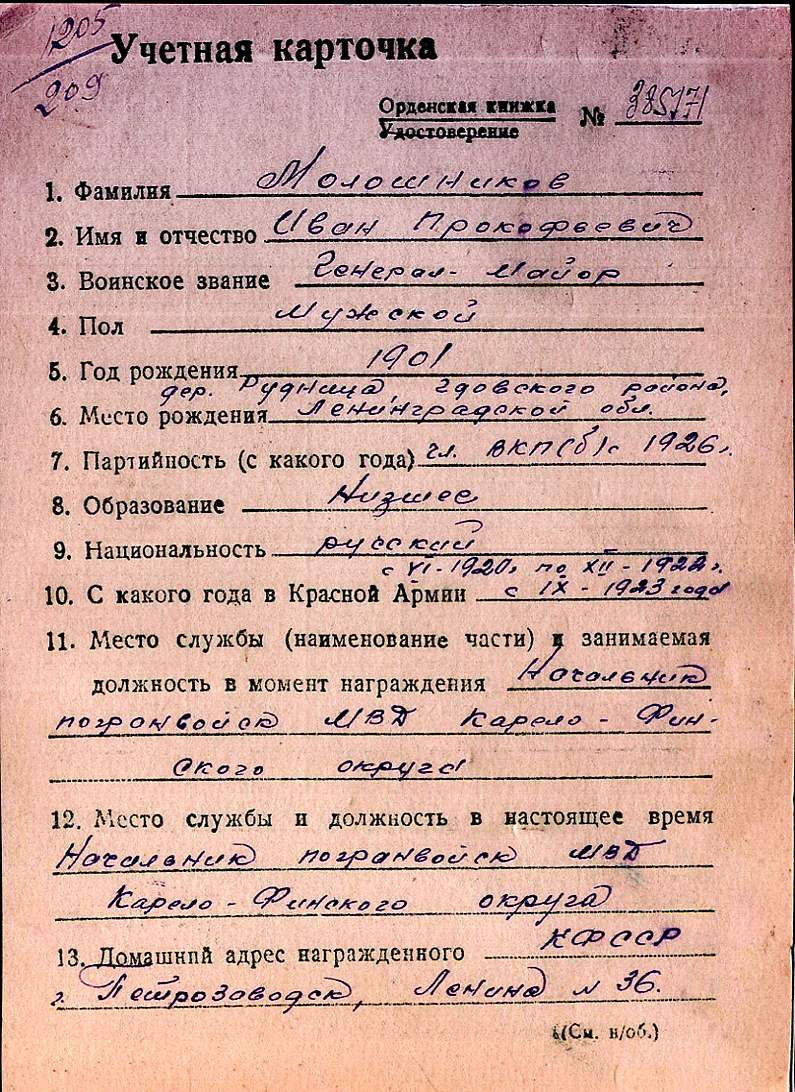 1205
209
Учетная карточка
Орденская книжка
Удостоверение
№ 385171
1. Фамилия Молошников
2. Имя и отчество Иван Прокофьевич
3. Воинское звание Генерал-майор
4. Пол Мужской
5. Год рождения 1901
дер. Рудница, Гдовского района,
6. Место рождения Ленинградской обл.
7. Партийность (с какого года) чл. ВКП(б) с 1926 г.
8. Образование Низшее
9. Национальность русский
с VI-1920г по XII-1922г.
10. С какого года в Красной Армии с IX-1923 года
11. Место службы (наименование части) и занимаемая
должность в момент награждения Начальник
погранвойск МВД Карело-Фин-
ского округа
12. Место службы и должность в настоящее время
Начальник погранвойск МВД
Карело-Финского округа
13. Домашний адрес награжденного КФССР
г. Петрозаводск, Ленина № 36.
(См. н/об.)